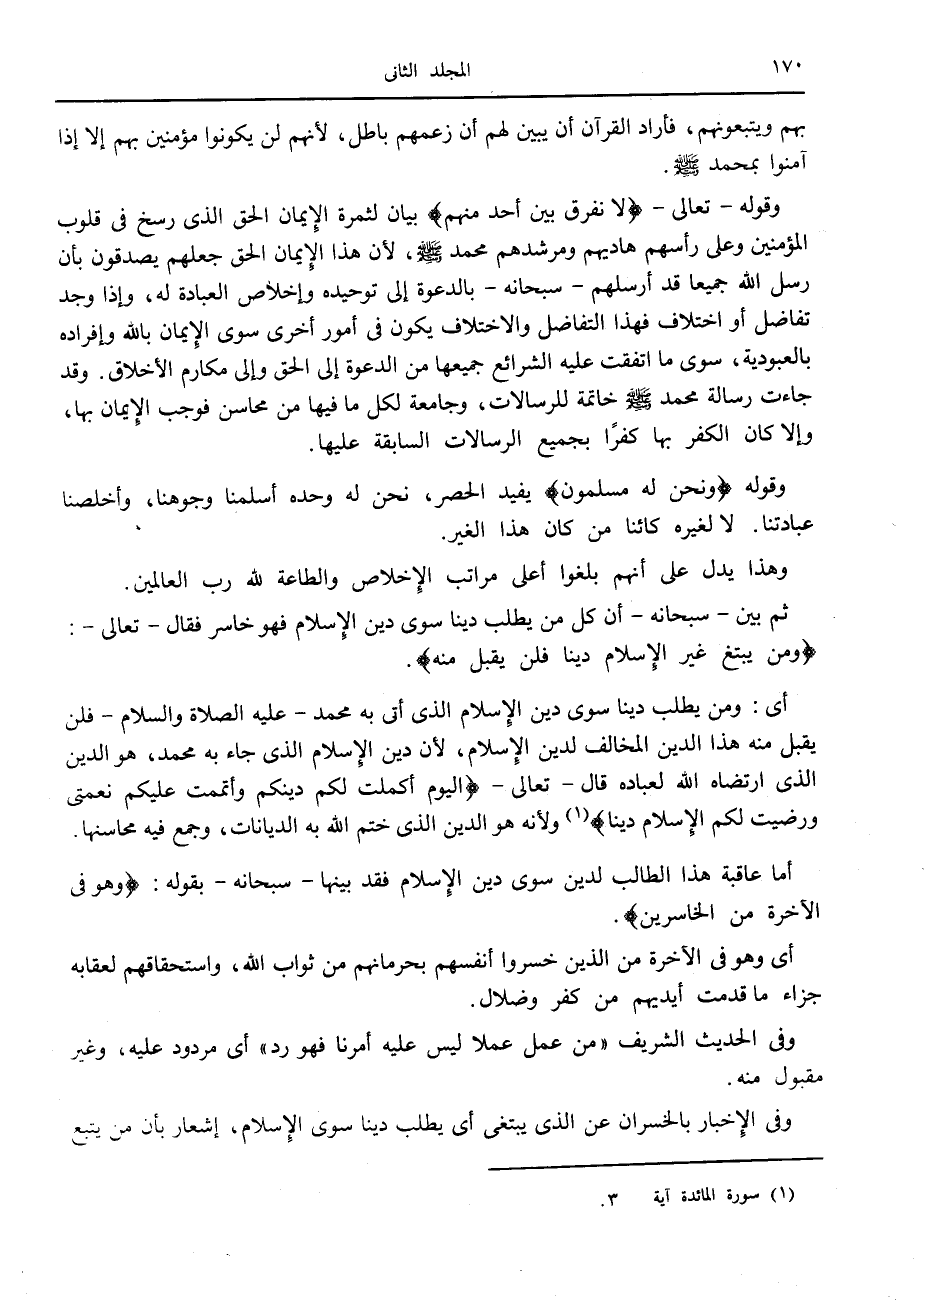 ١٧٠
المجلد الثانى
بهم ويتبعونهم، فأراد القرآن أن يبين لهم أن زعمهم باطل، لأنهم لن يكونوا مؤمنين بهم إلا إذا
آمنوا بمحمد ﷺ.
وقوله - تعالى - ﴿لا نفرق بين أحد منهم﴾ بيان لثمرة الإيمان الحق الذى رسخ فى قلوب
المؤمنين وعلى رأسهم هاديهم ومرشدهم محمد ﷺ، لأن هذا الإيمان الحق جعلهم يصدقون بأن
رسل الله جميعا قد أرسلهم - سبحانه - بالدعوة إلى توحيده وإخلاص العبادة له، وإذا وجد
تفاضل أو اختلاف فهذا التفاضل والاختلاف يكون فى أمور أخرى سوى الإيمان بالله وإفراده
بالعبودية، سوى ما اتفقت عليه الشرائع جميعها من الدعوة إلى الحق وإلى مكارم الأخلاق. وقد
جاءت رسالة محمد ﷺ خاتمة للرسالات، وجامعة لكل ما فيها من محاسن فوجب الإيمان بها،
وإلا كان الكفر بها كفرًا بجميع الرسالات السابقة عليها.
وقوله ﴿ونحن له مسلمون﴾ يفيد الحصر، نحن له وحده أسلمنا وجوهنا، وأخلصنا
عبادتنا. لا لغيره كائنا من كان هذا الغير.
وهذا يدل على أنهم بلغوا أعلى مراتب الإخلاص والطاعة لله رب العالمين.
ثم بين - سبحانه - أن كل من يطلب دينا سوى دين الإسلام فهو خاسر فقال - تعالى - :
﴿ومن يبتغ غير الإسلام دينا فلن يقبل منه﴾.
أى : ومن يطلب دينا سوى دين الإسلام الذى أتى به محمد - عليه الصلاة والسلام - فلن
يقبل منه هذا الدين المخالف لدين الإسلام، لأن دين الإسلام الذى جاء به محمد، هو الدين
الذى ارتضاه الله لعباده قال - تعالى - ﴿اليوم أكملت لكم دينكم وأتممت عليكم نعمتى
ورضيت لكم الإسلام دينا﴾(١) ولأنه هو الدين الذى ختم الله به الديانات، وجمع فيه محاسنها.
أما عاقبة هذا الطالب لدين سوى دين الإسلام فقد بينها - سبحانه - بقوله : ﴿وهو فى
الآخرة من الخاسرين﴾.
أى وهو فى الآخرة من الذين خسروا أنفسهم بحرمانهم من ثواب الله، واستحقاقهم لعقابه
جزاء ما قدمت أيديهم من كفر وضلال.
وفى الحديث الشريف «من عمل عملا ليس عليه أمرنا فهو رد» أى مردود عليه، وغير
مقبول منه.
وفى الإخبار بالخسران عن الذى يبتغى أى يطلب دينا سوى الإسلام، إشعار بأن من يتبع
(١) سورة المائدة آية ٣.